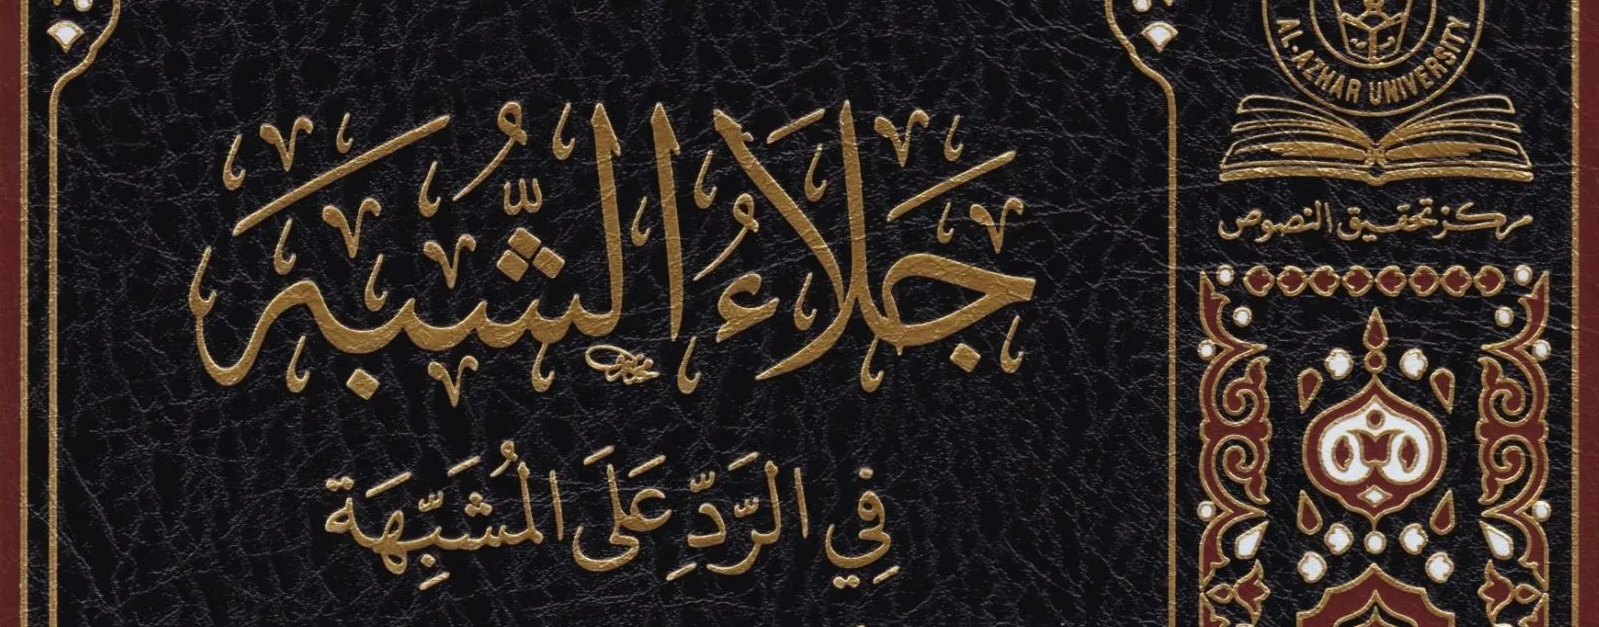 AL-AZHAR UNIVERSITY
مركز تحقيق النصوص
جَلَاءُ الشُّبَهِ
فِي الرَّدِّ عَلَى المُشَبِّهَة